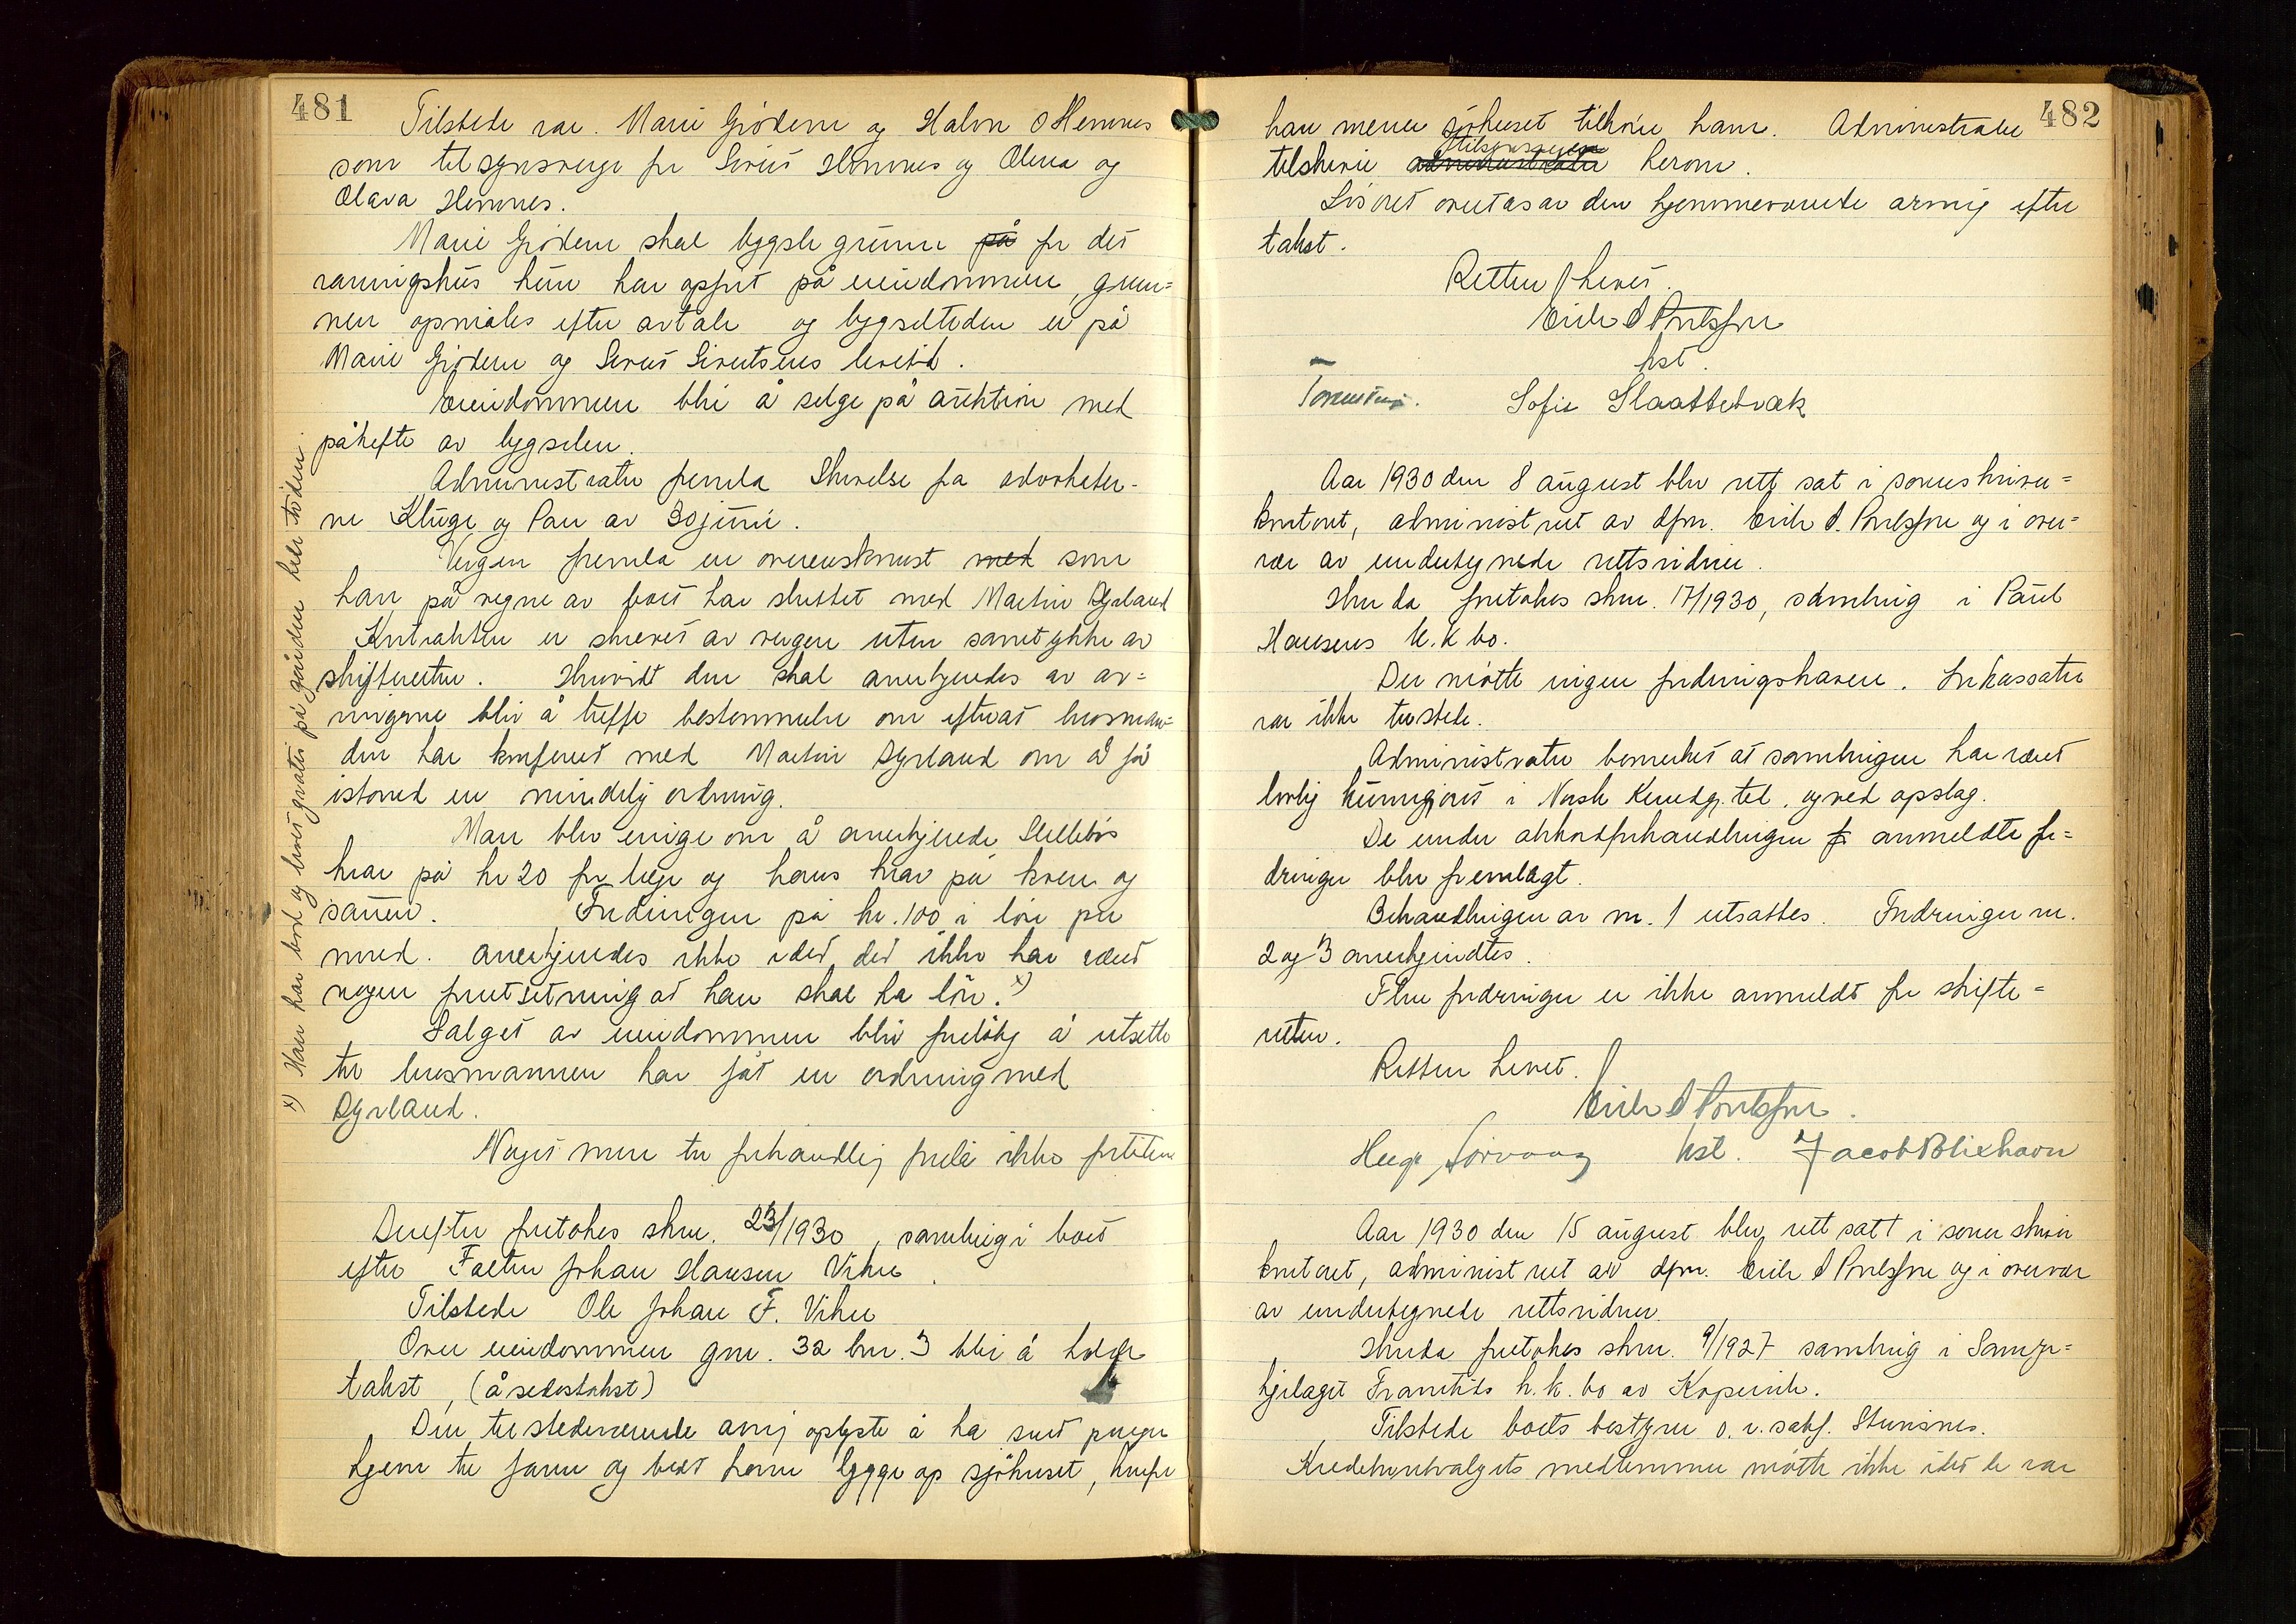 481
Tilstede var. Marie Gjödem og Halvor O Hemnes
som tilsynsverge for Sivert Hemnes og Olena og
Olava Hemnes.
Marie Gjödem skal bygsle grunn på for det
vaaningshus hun har opfört på eiendommen, grun=
nen opmåles efter avtale og bygseltiden er på
Marie Gjödem og Sivert Sivertsens levetid.
Eiendommen blir å selge på auktion med
påhefte av bygselen.
Administrator fremla Skrivelse fra advokater-
ne Kluge og Pau av 30 juni.
Vergen fremla en overenskomst med som
han på vegne av boet har sluttet med Martin Dyrland
Kontrakten er skrevet av vergen uten samtykke av
skifteretten. Hvorvidt den skal anerkjendes av ar=
vingene blir å treffe bestemmelse om efterat husman=
den har konferert med Martin Dyrland om å få
istand en mindelig ordning.
Man blev enige om å anerkjende
krav på kr 20 for lege og hans krav på kven og
sauen. Fordringen på kr. 100 i lön per
mned. anerkjendes ikke idet det ikke har været
nogen forutsetning at han skal ha lön. x)
Salget av eiendommen blir forelöbig å utsette
til husmannen har fåt en ordning med
Dyrland.
Noget mere til forhandling forelå ikke
x) Han har bord og levet gratis på gården hele tiden.
Derefter foretokes skm. 23/1930, samling i boet
efter Johan Hansen Vikre.
Tilstede Ole Johan F. Vikre
Over eiendommen gnr. 32 bnr. 3 blir å holde
takst, (åsedestakst)
Den tilstedeværende arving oplyste å ha sent penger
hjem til faren og bedt ham bygge op sjöhuset, hvorfor
482
han mener sjöhuset tilhörer ham. Administrator
tilskrive administrator tilsynsvergen herom.
Lösöret overtas av den hjemmeværende arving efter
takst.
Retten hevet.
Eirik S Poulsson
kst.
Sofie Slaattebræk
Aar 1930 den 8 august blev rett sat i sorenskriver=
kontoret, administrert av dfm. Eirik S. Poulsson og i over=
vær av undertegnede rettsvidner.
Hvorda foretokes skm. 17/1930, samling i Paul
Hansens k. k bo.
Der mötte ingen fordringshavere. Inkassator
var ikke tilstede.
Administrator bemerket at samlingen har været
lovlig kunngjort i Norsk Kundgj. tid. og ved opslag.
De under akkordforhandlingen f anmeldte for=
dringer blev fremlagt.
Behandlingen av nr. 1 utsattes. Fordringer nr.
2 og 3 anerkjendtes.
Flere fordringer er ikke anmeldt for skifte=
retten.
Retten hevet.
Eirik S Poulsson.
kst. Jacob Blixhavn
Aar 1930 den 15 august blev rett satt i sorenskriver
kontoret, administrert av dfm. Eirik S Poulsson og i overvær
av undertegnede rettsvidner.
Hvorda foretokes skm. 9/1927 samling i Samyr=
kjelaget Framtids k. k. bo av Kopervik.
Tilstede boets bestyrer o. r. sakf. Stensnes.
Kreditorutvalgets medlemmer mötte ikke idet de var